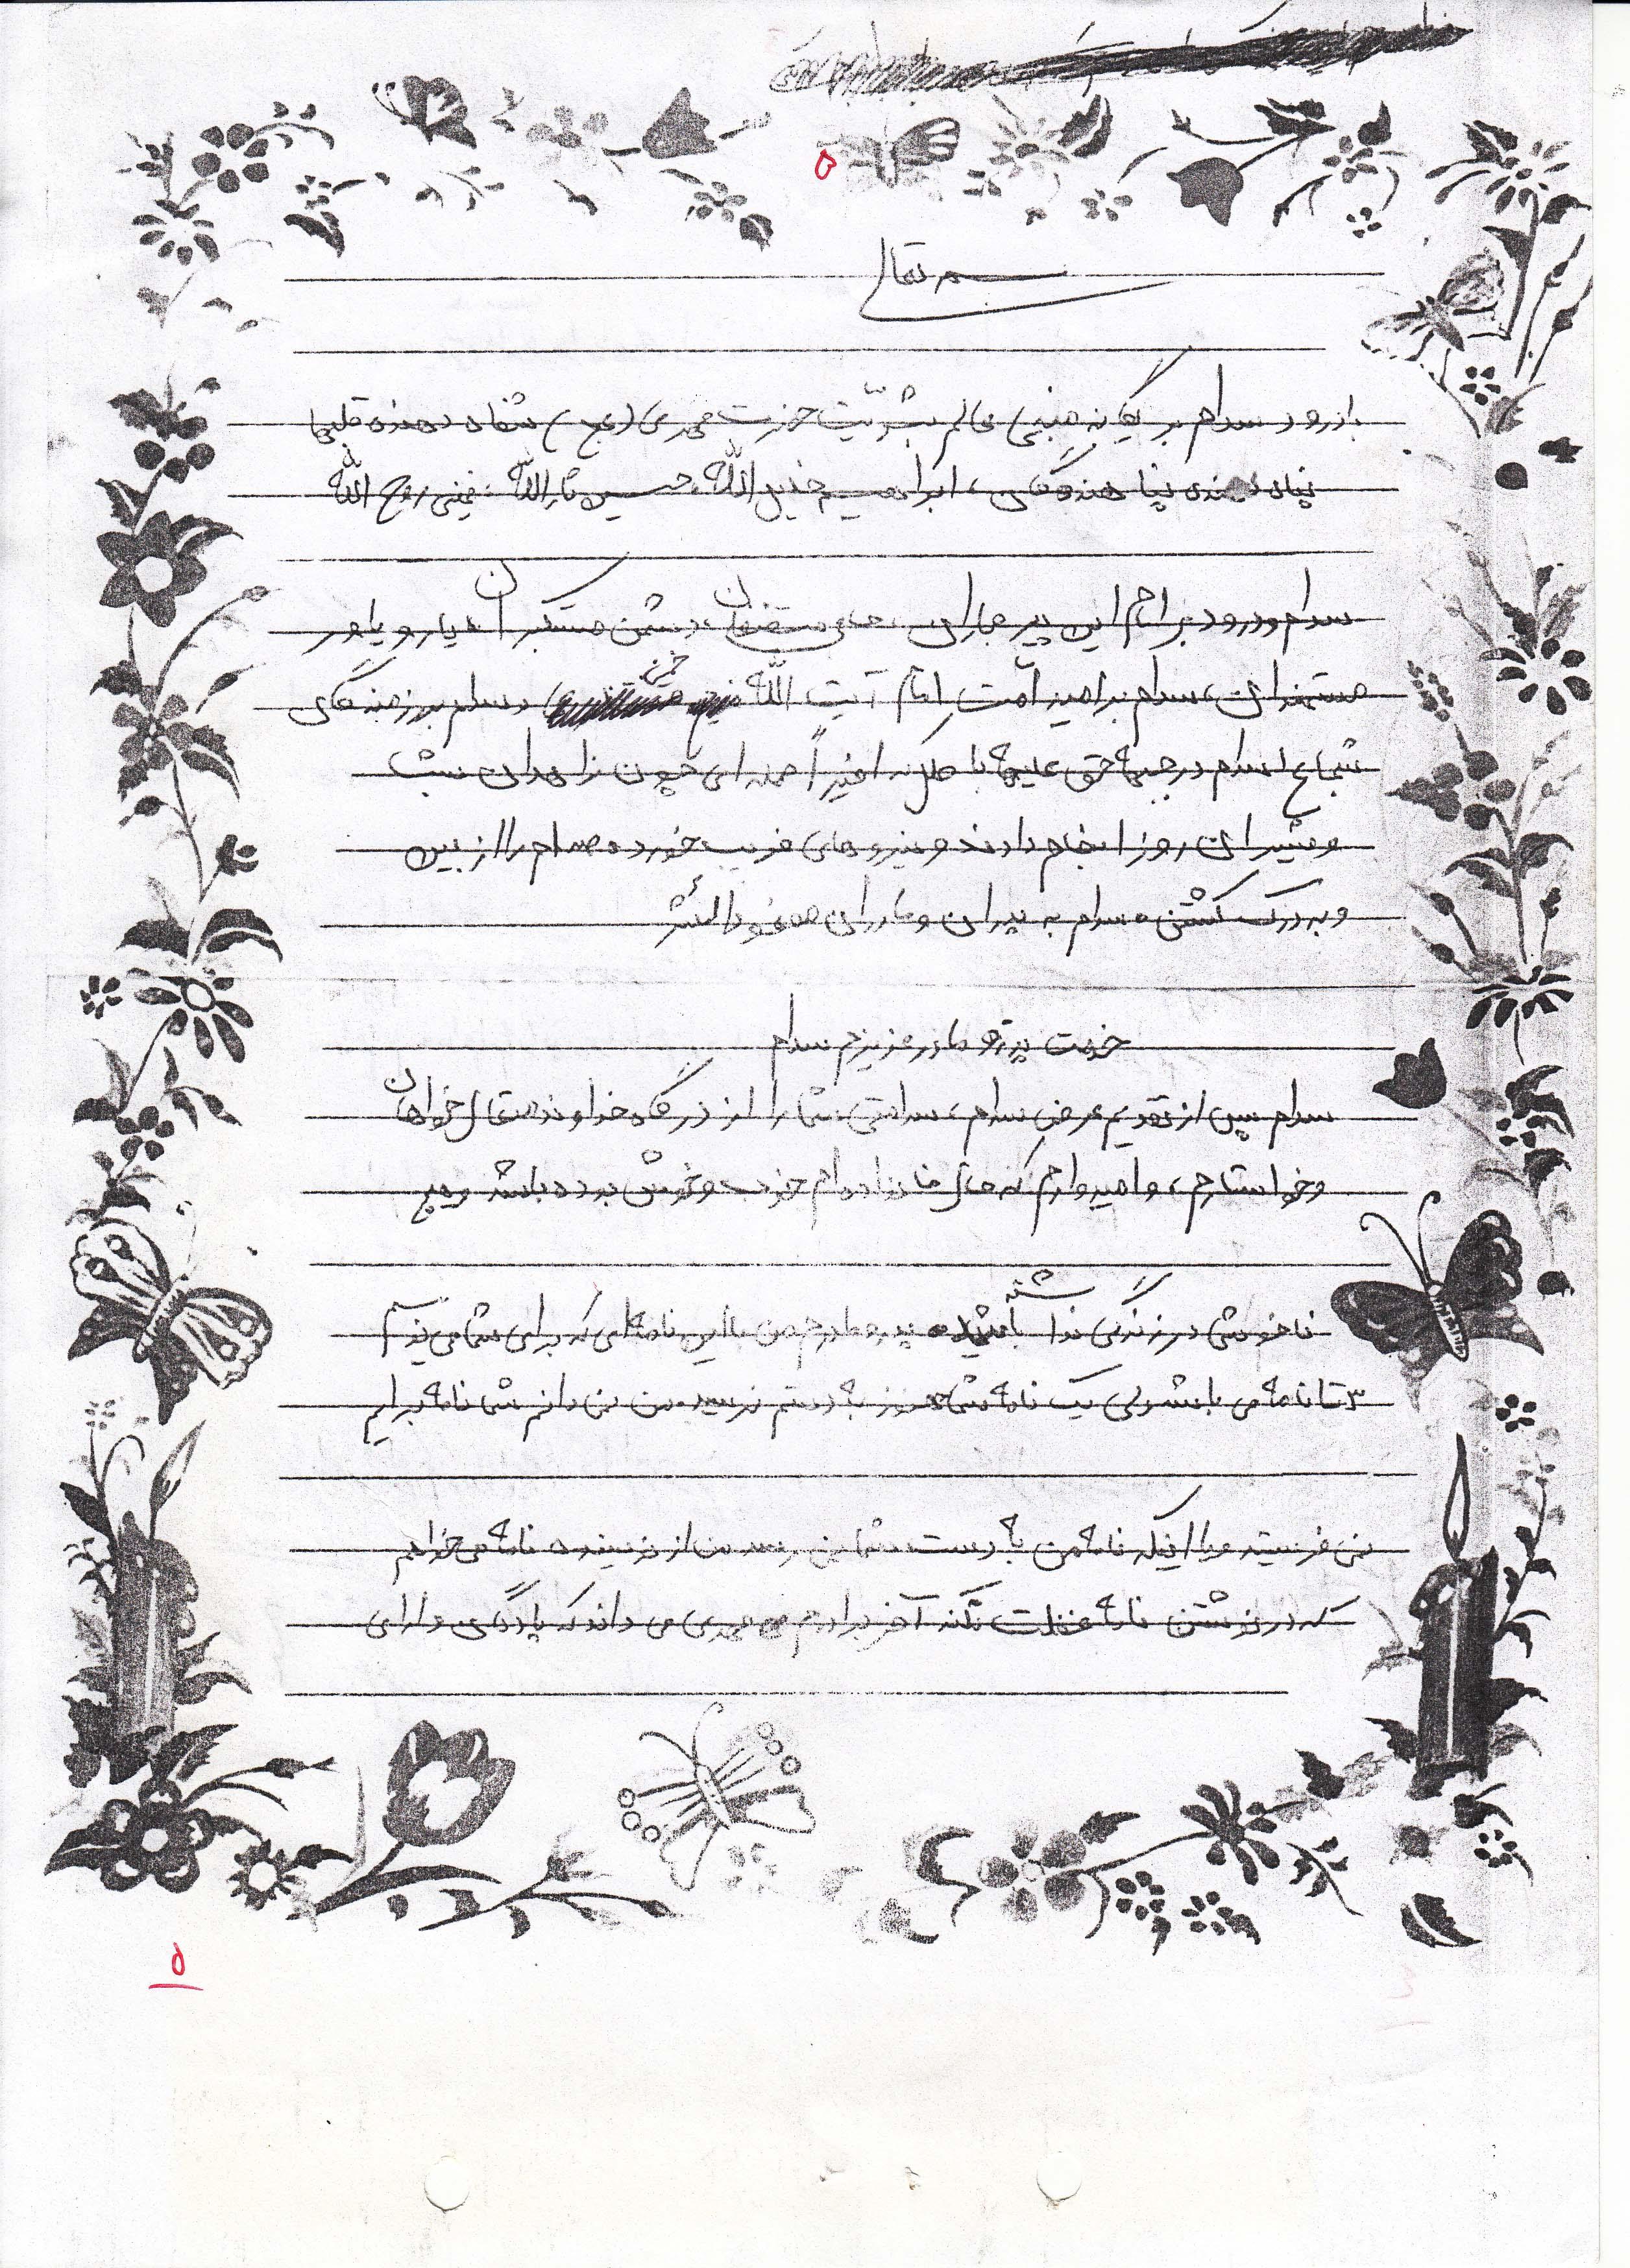 ۵
بسمه تعالی
با درود سلام بر یگانه منجی عالم بشریّت حضرت مهدی (عج) شفاء دهنده قلبها
پناه دهنده پناهندگان، ابراهیم خلیل اللّه، حسین ثاراللّه، خمینی روح اللّه
سلام و درود بر امام این پیر جماران، حامی مستضعفان، دشمن مستکبران، یار و یاور
مستمندان، سلام بر امید امّت امام آیت اللّه و سلام بر رزمندگان
شجاع اسلام در جبهه حق علیه باطل که اخیراً حمله ای چون زاهدان شب
و شیران روز انجام دادند و نیروهای فریب خورده صدام را از بین
و به درک کشتن. سلام به پدران و مادران
خدمت پدر و مادر عزیزم سلام
سلام پس از تقدیم عرض سلام، سلامتی شما را از درگاه خداوند متعال خواهان
و خواستارم، و امیدوارم که حال خانواده ام خوب و خوش بوده باشد و هیچ
ناخوشی در زندگی ندا باشید شته پدر و مادرم من با این نامه ای که برای شما می
۳ تا نامه می باشد ولی یک نامه شما هنوز به دستم نرسید. من نمی دانم شما نامه برایم
نمی فرستید و یا اینکه نامه من به دست شما نمی رسد من از نویسنده نامه می خواهم
که در نوشتن نامه غفلت نکند آخر برادرم مهدی می داند که پادگان دارای
۵